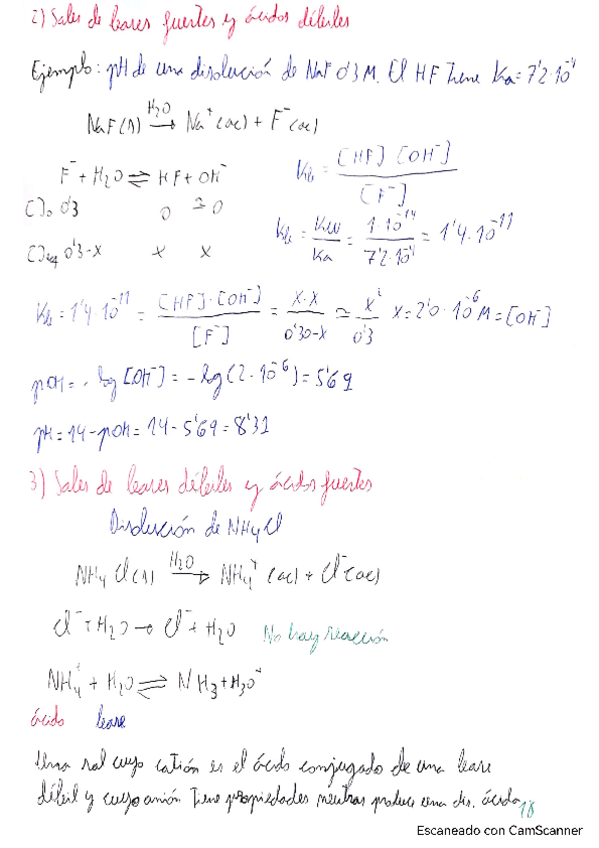 2) Sales de bases fuertes y ácidos débiles
Ejemplo: pH de una disolución de NaF 0'3 M. El HF tiene Ka = 7'2·10⁻⁴
NaF(s) —H₂O→ Na⁺(ac) + F⁻(ac)
F⁻ + H₂O ⇌ HF + OH⁻
[ ]₀ 0'3 0 ≃ 0
[ ]eq 0'3-x x x
Kb = [HF] [OH⁻] / [F⁻]
Kb = Kw / Ka = 1·10⁻¹⁴ / 7'2·10⁻⁴ = 1'4·10⁻¹¹
Kb = 1'4·10⁻¹¹ = [HF]·[OH⁻] / [F⁻] = x·x / 0'30-x ≃ x² / 0'3 x = 2'0·10⁻⁶ M = [OH⁻]
pOH = - log [OH⁻] = - log (2·10⁻⁶) = 5'69
pH = 14 - pOH = 14 - 5'69 = 8'31
3) Sales de bases débiles y ácidos fuertes
Disolución de NH₄Cl
NH₄Cl(s) —H₂O→ NH₄⁺(ac) + Cl⁻(ac)
Cl⁻ + H₂O → Cl⁻ + H₂O No hay reacción
NH₄⁺ + H₂O ⇌ NH₃ + H₃O⁺
ácido base
Una sal cuyo catión es el ácido conjugado de una base
débil y cuyo anión tiene propiedades neutras produce una dis. ácida
18
Escaneado con CamScanner